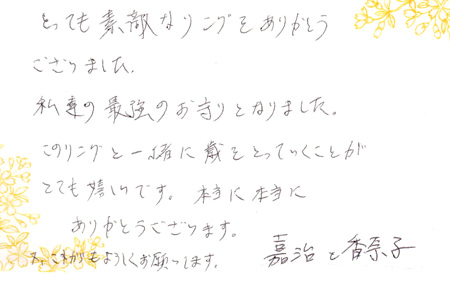 とっても素敵なリングをありがとう
ございました。
私達の最強のお守りとなりました。
このリングと一緒に歳をとっていくことが
とても嬉しいです。本当に本当に
ありがとうございます。
これからもよろしくお願いします。
嘉治と香奈子